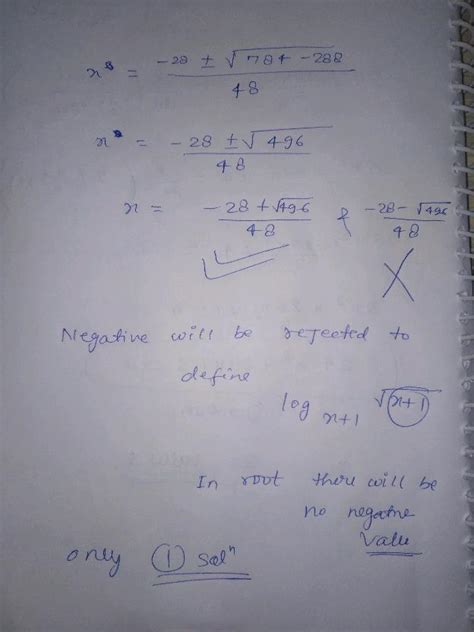 x = -28 ± √784 - 288 / 48
x = -28 ± √496 / 48
x = -28 + √496 / 48 & -28 - √496 / 48
Negative will be rejected to
define
log x+1 √x+1
In root there will be
no negative
value
only 1 solⁿ